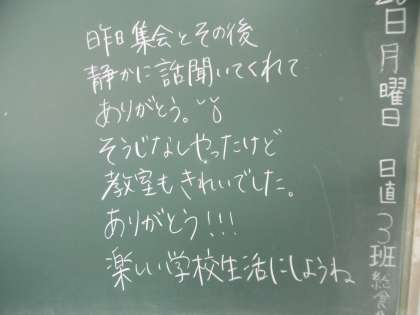 昨日集会とその後
静かに話聞いてくれて
ありがとう。
そうじなしやったけど
教室もきれいでした。
ありがとう!!!
楽しい学校生活にしようね
日月曜日 日直3班 給食